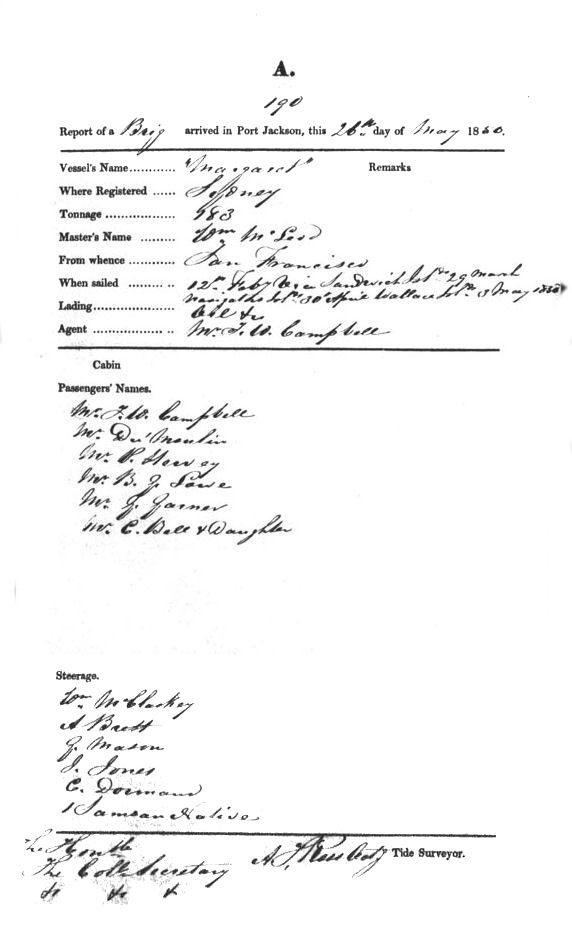 A.
190
Report of a Brig arrived in Port Jackson, this 26th day of May 1850.
Vessel's Name............ "Margaret" Remarks
Where Registered ...... Sydney
Tonnage .................. 183
Master's Name ......... Wm McLeod
From whence ............ San Francisco
When sailed ......... .. 12th Feby Via Sandwich Isds 29 March
Navigators Isds 30 April Wallace Isds 3 May 1850
Lading.....................
Agent .................. .. Mr. F. W. Campbell
Cabin
Passengers' Names.
Mr. F. W. Campbell
Mr. Du'Moulin
Mr. P. Harvey
Mr. B. J. Lowe
Mr. J. Garner
Mr. C. Bell & Daughter
Steerage.
Wm McClaskey
A Brett
J. Mason
J. Jones
C. Dormand
1 Samoan Native
The Honble
The Coll Secretary Tide Surveyor.
&c &c &